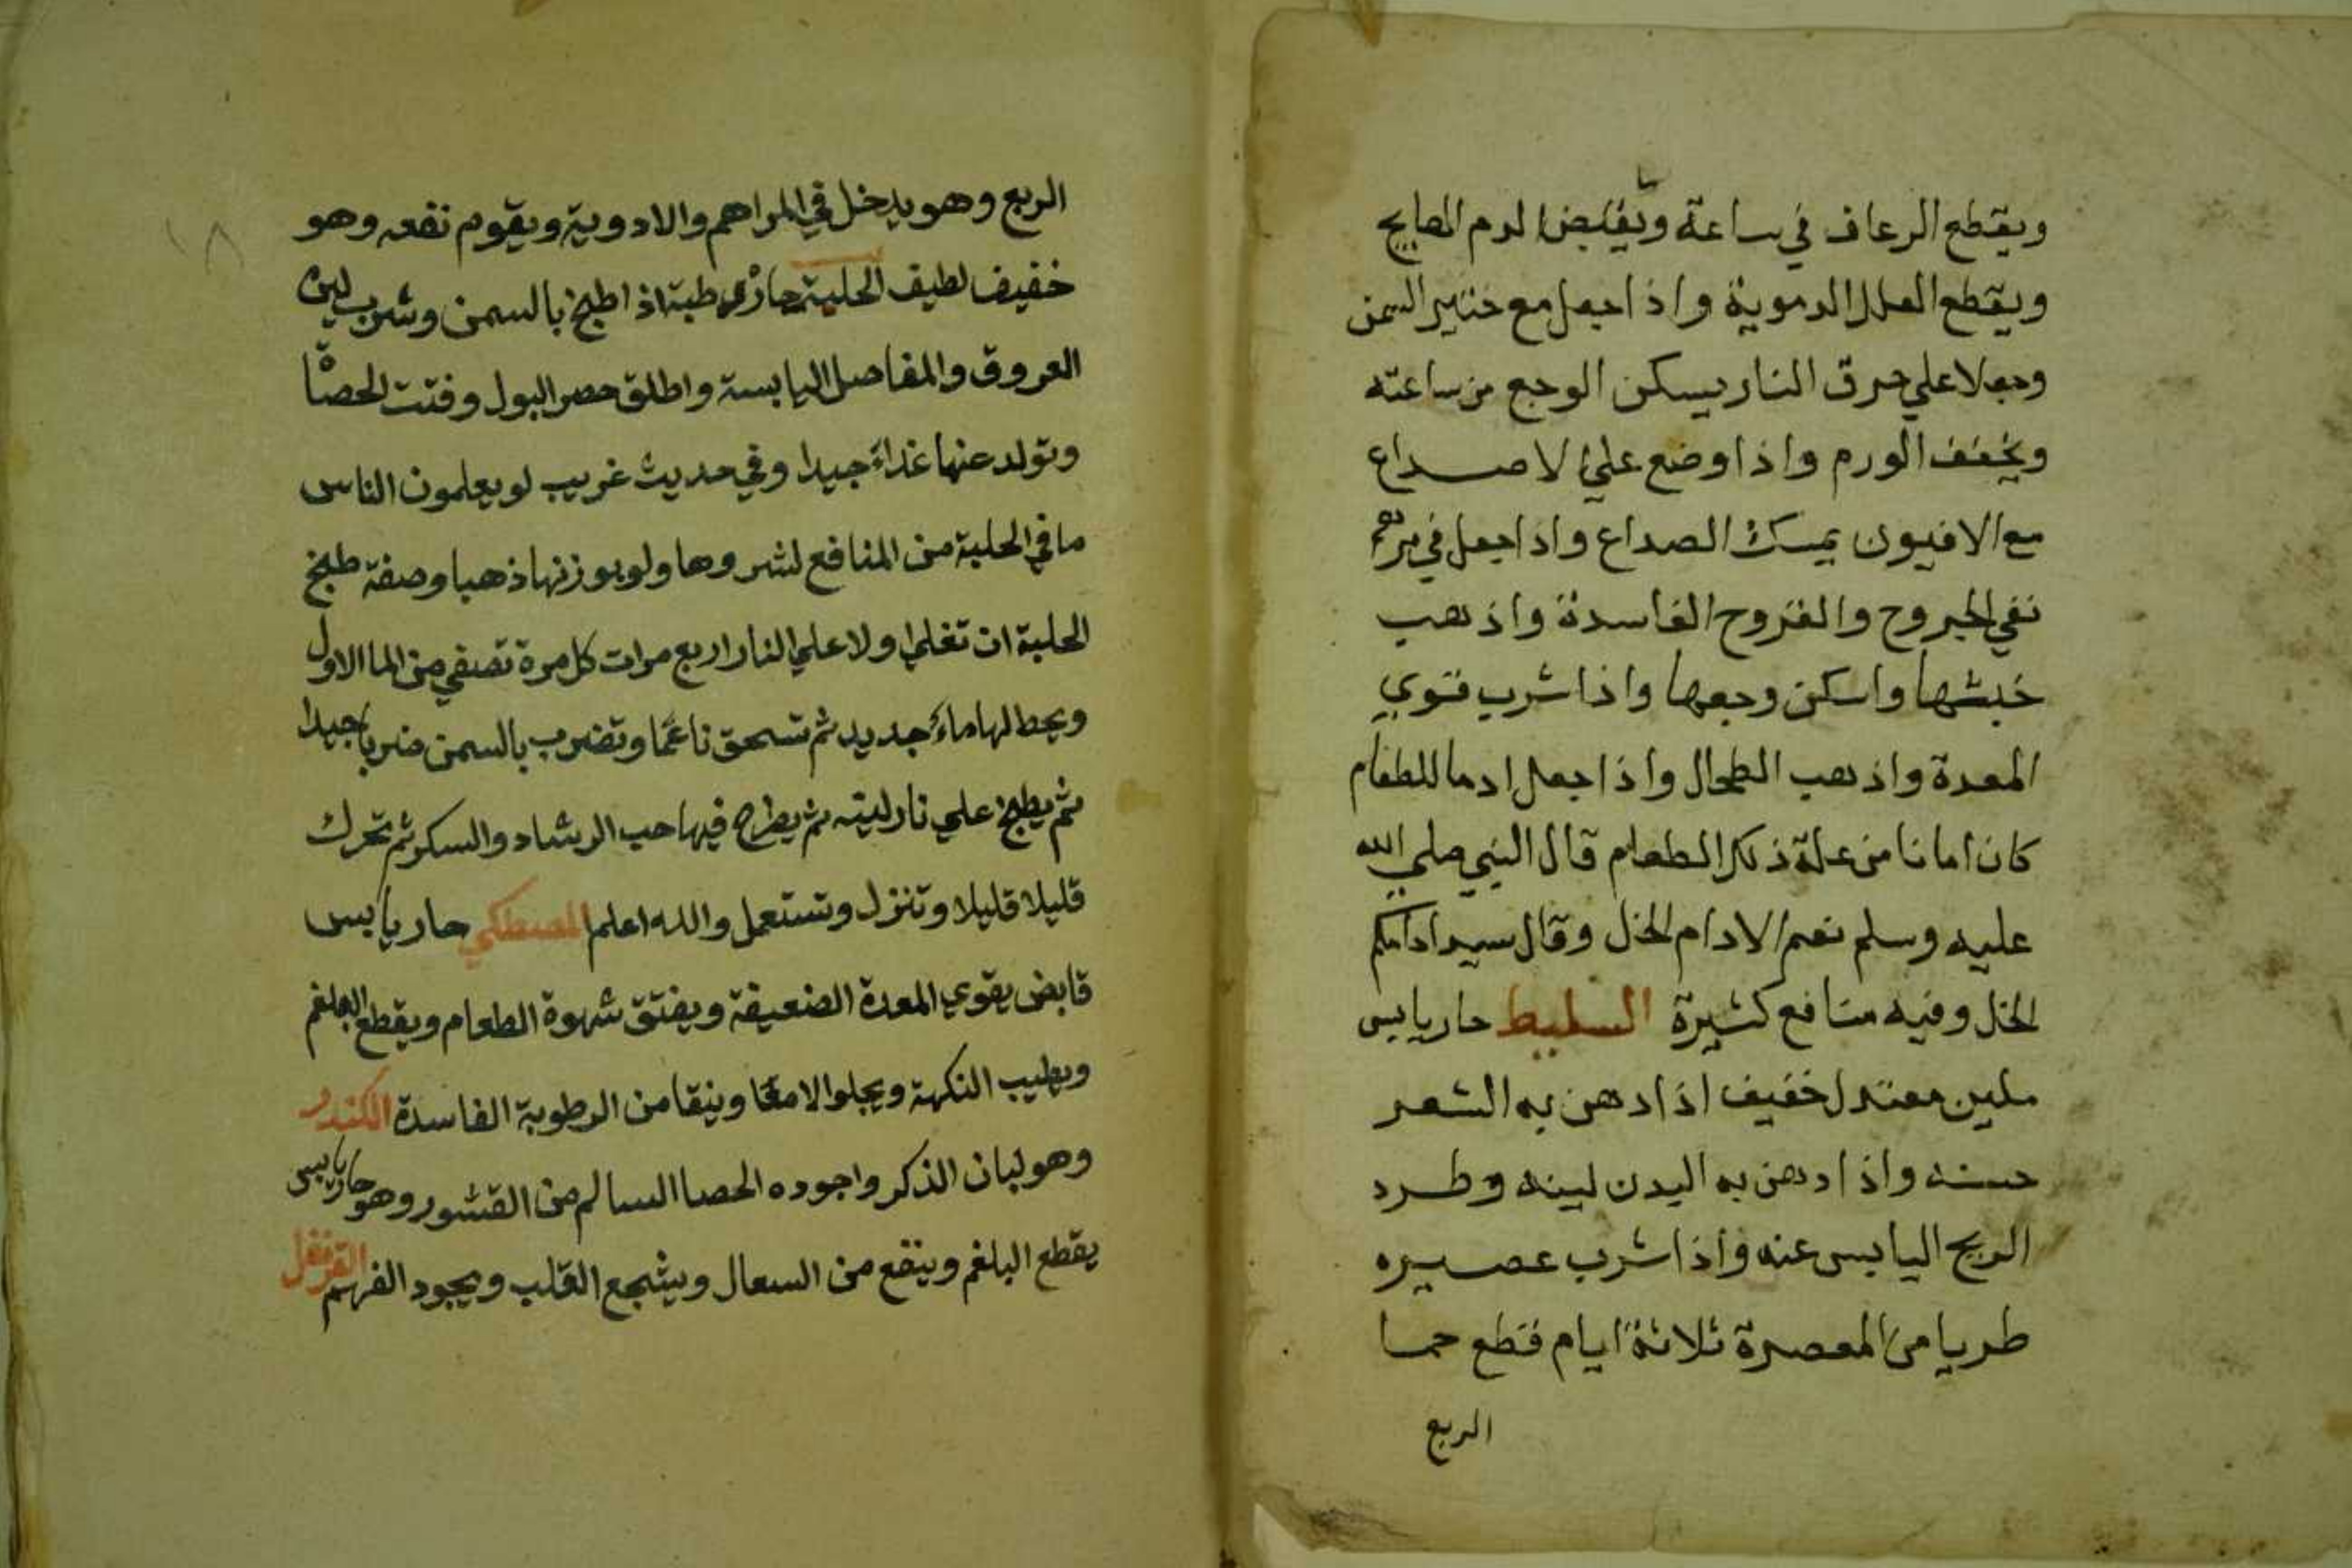 ويقطع الرعاف في ساعة ويقبض الدم
ويقطع العلل الدموية واذا جعل مع خمير السمن
وجعلا علي حرق النار يسكن الوجع من ساعته
ويخفف الورم واذا وضع علي الاصداع
مع الافيون يمسك الصداع واذا جعل في مرهم
نقي الجروح والقروح الفاسدة واذهب
خبثها واسكن وجعها واذا شرب قوي
المعدة واذهب الطحال واذا جعل ادما للطعام
كان امانا من علة ذلك الطعام قال النبي صلي الله
عليه وسلم نعم الادام الخل وقال سيد ادامكم
الخل وفيه منافع كثيرة السليط حار يابس
ملين معتدل خفيف اذا دهن به الشعر
حسنه واذا دهن به البدن لينه وطرد
الريح اليابس عنه واذا شرب عصيره
طريا من المعصرة ثلاثة ايام قطع حما
الربع
١٨
الربع وهو يدخل في المراهم والادوية ويقوم نفعه وهو
خفيف لطيف الحلبة حارة رطبة اذا طبخ بالسمن وشرب لين
العروق والمفاصل اليابسة واطلق حصر البول وفتت الحصاة
وتولد عنها غذاء جيدا وفي حديث غريب لو يعلمون الناس
ما في الحلبة من المنافع لشروها ولو بوزنها ذهبا وصفة طبخ
الحلبة ان تغلي اولا علي النار اربع مرات كل مرة تصفي من الما الاول
ويحط لها ماء جديد ثم تسحق ناعما وتضرب بالسمن ضربا جيدا
ثم يطبخ علي نار لينه ثم يطرح فيها حب الرشاد والسكر ثم تحرك
قليلا قليلا وتنزل وتستعمل والله اعلم المصطكي حار يابس
قابض يقوي المعدة الضعيفة ويفتق شهوة الطعام ويقطع البلغم
ويطيب النكهة ويجلو الامعا وينقا من الرطوبة الفاسدة الكندر
وهو لبان الذكر واجوده الحصا السالم من القشور وهو حار يابس
يقطع البلغم وينفع من السعال ويشجع القلب ويجود الفهم القرنفل